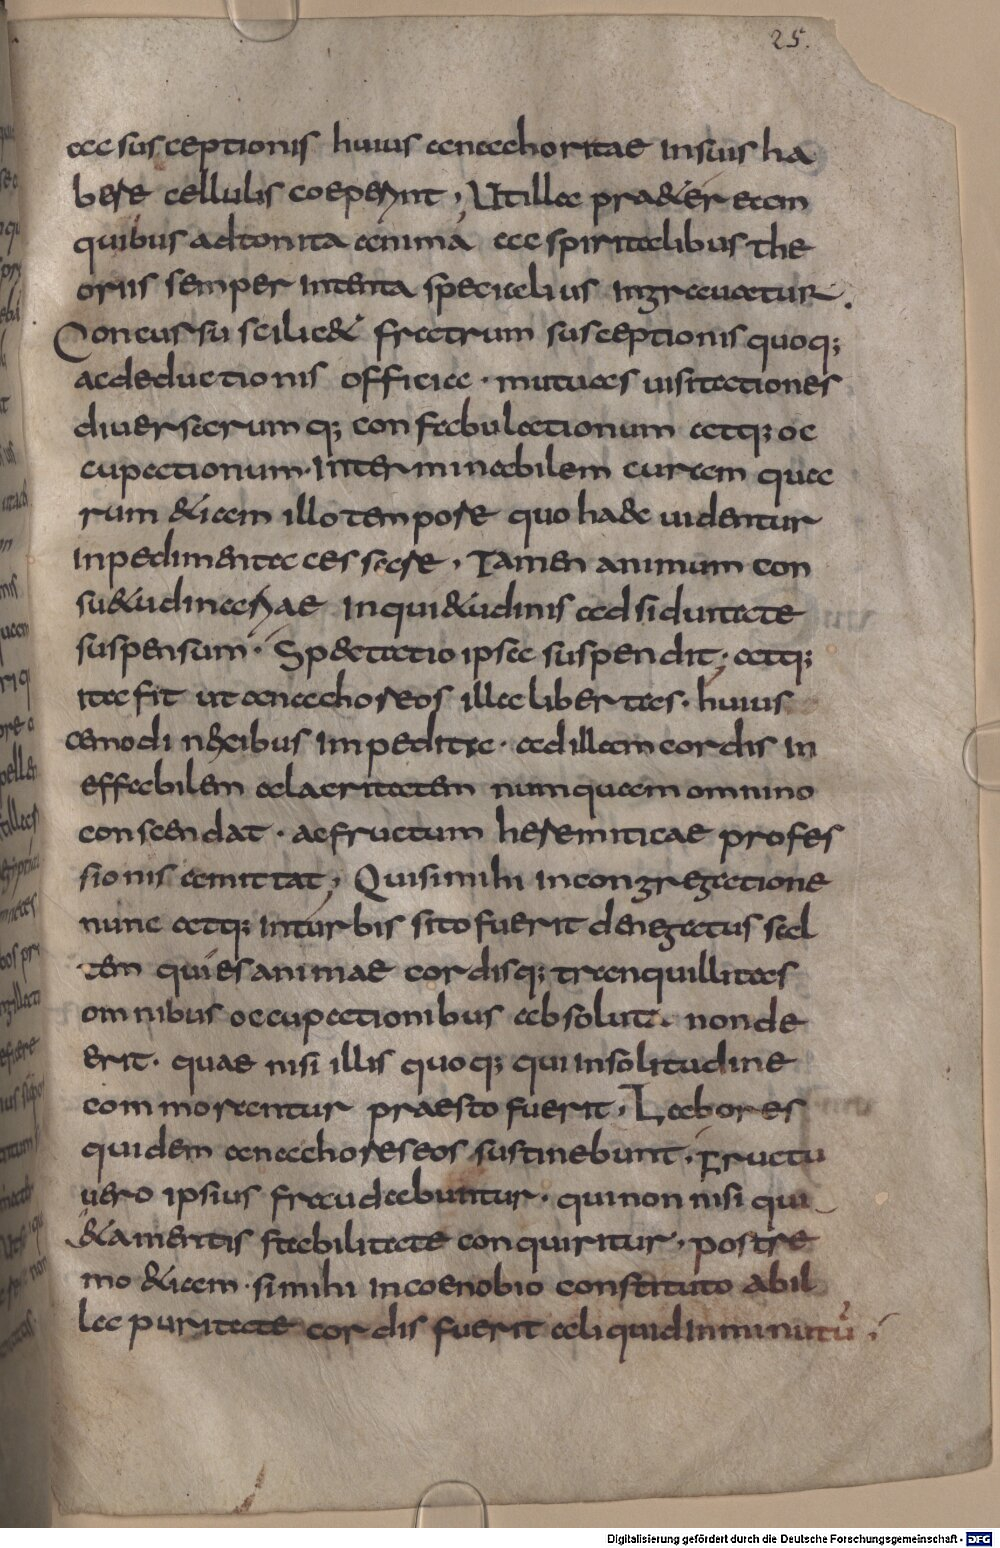 25.
ac susceptionis huius anachoritae insuis ha
bere cellulis coeperint, Utilla pra&er eam
quibus adtonita anima ac spiritalibus the
oriis semper intenta specialius ingravatur.
Concursu scilic& fratrum susceptionis quoq;
acdeductionis officia. mutuas uisitationes
diversarumq; confabulationum atq; oc
cupationum. interminabilem curam qua
rum &iam illo tempore quo hade uidentur
inpedimenta cessare, Tamen animum con
su&udinariae inqui&udinis adsiduitate
suspensum. Sp&tatio ipsa suspendit; atq;
ita fit ut anachoreos illa libertas. huius
cemodi nexibus impedita. adillam cordis in
effabilem alacritatem numquam omnino
conscendat. acfructum heremiticae profes
sionis amittat, Quisimihi incongregatione
nunc atq; inturbis sito fuerit denegatus sal
tem quies animae cordisq; tranquillitas
omnibus occupationibus absoluta. nonde
erit. quae nisi illis quoq; qui insolitudine
commorantur praesto fuerit, Labores
quidem anachoreseos sustinebunt, Fructu
uero ipsius fraudabuntur. quinon nisi qui
&ia mentis stabilitate conquiritur, postre
mo &iam. simihi incoenobio constituto abil
la puritate cordis fuerit aliquid inminutū,
Digitalisierung gefördert durch die Deutsche Forschungsgemeinschaft - DFG